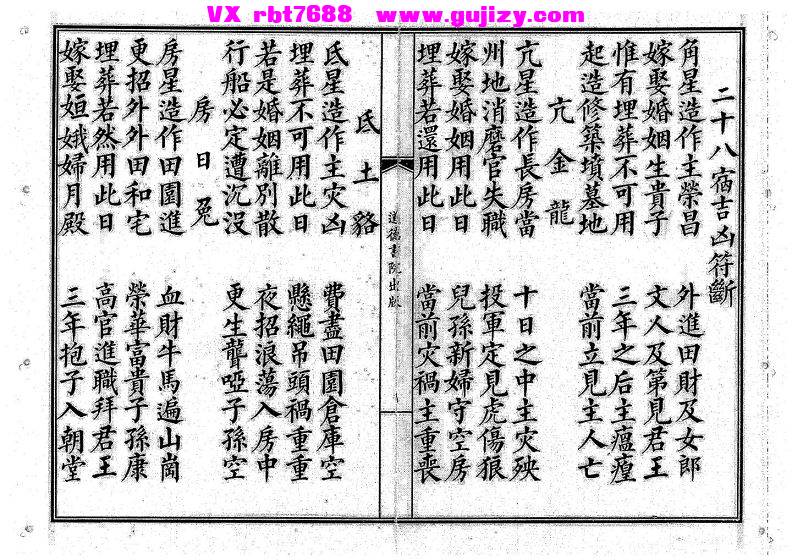 VX rbt7688 www.gujizy.com
二十八宿吉凶符斷
角星造作主榮昌 外進田財及女郎
嫁娶婚姻生貴子 文人及第見君王
惟有埋葬不可用 三年之后主瘟瘟
起造修築墳墓地 當前立見主人亡
亢金龍
亢星造作長房當 十日之中主灾殃
州地消磨官失職 投軍定見虎傷狼
嫁娶婚姻用此日 兒孫新婦守空房
埋葬若還用此日 當前灾禍主重喪
道德書院出版
氐土貉
氐星造作主灾凶 費盡田園倉庫空
埋葬不可用此日 懸繩吊頭禍重重
若是婚姻離別散 夜招浪蕩入房中
行船必定遭沉沒 更生聾啞子孫空
房日兔
房星造作田園進 血財牛馬遍山崗
更招外外田和宅 榮華富貴子孫康
埋葬若然用此日 高官進職拜君王
嫁娶姮娥歸月殿 三年抱子入朝堂